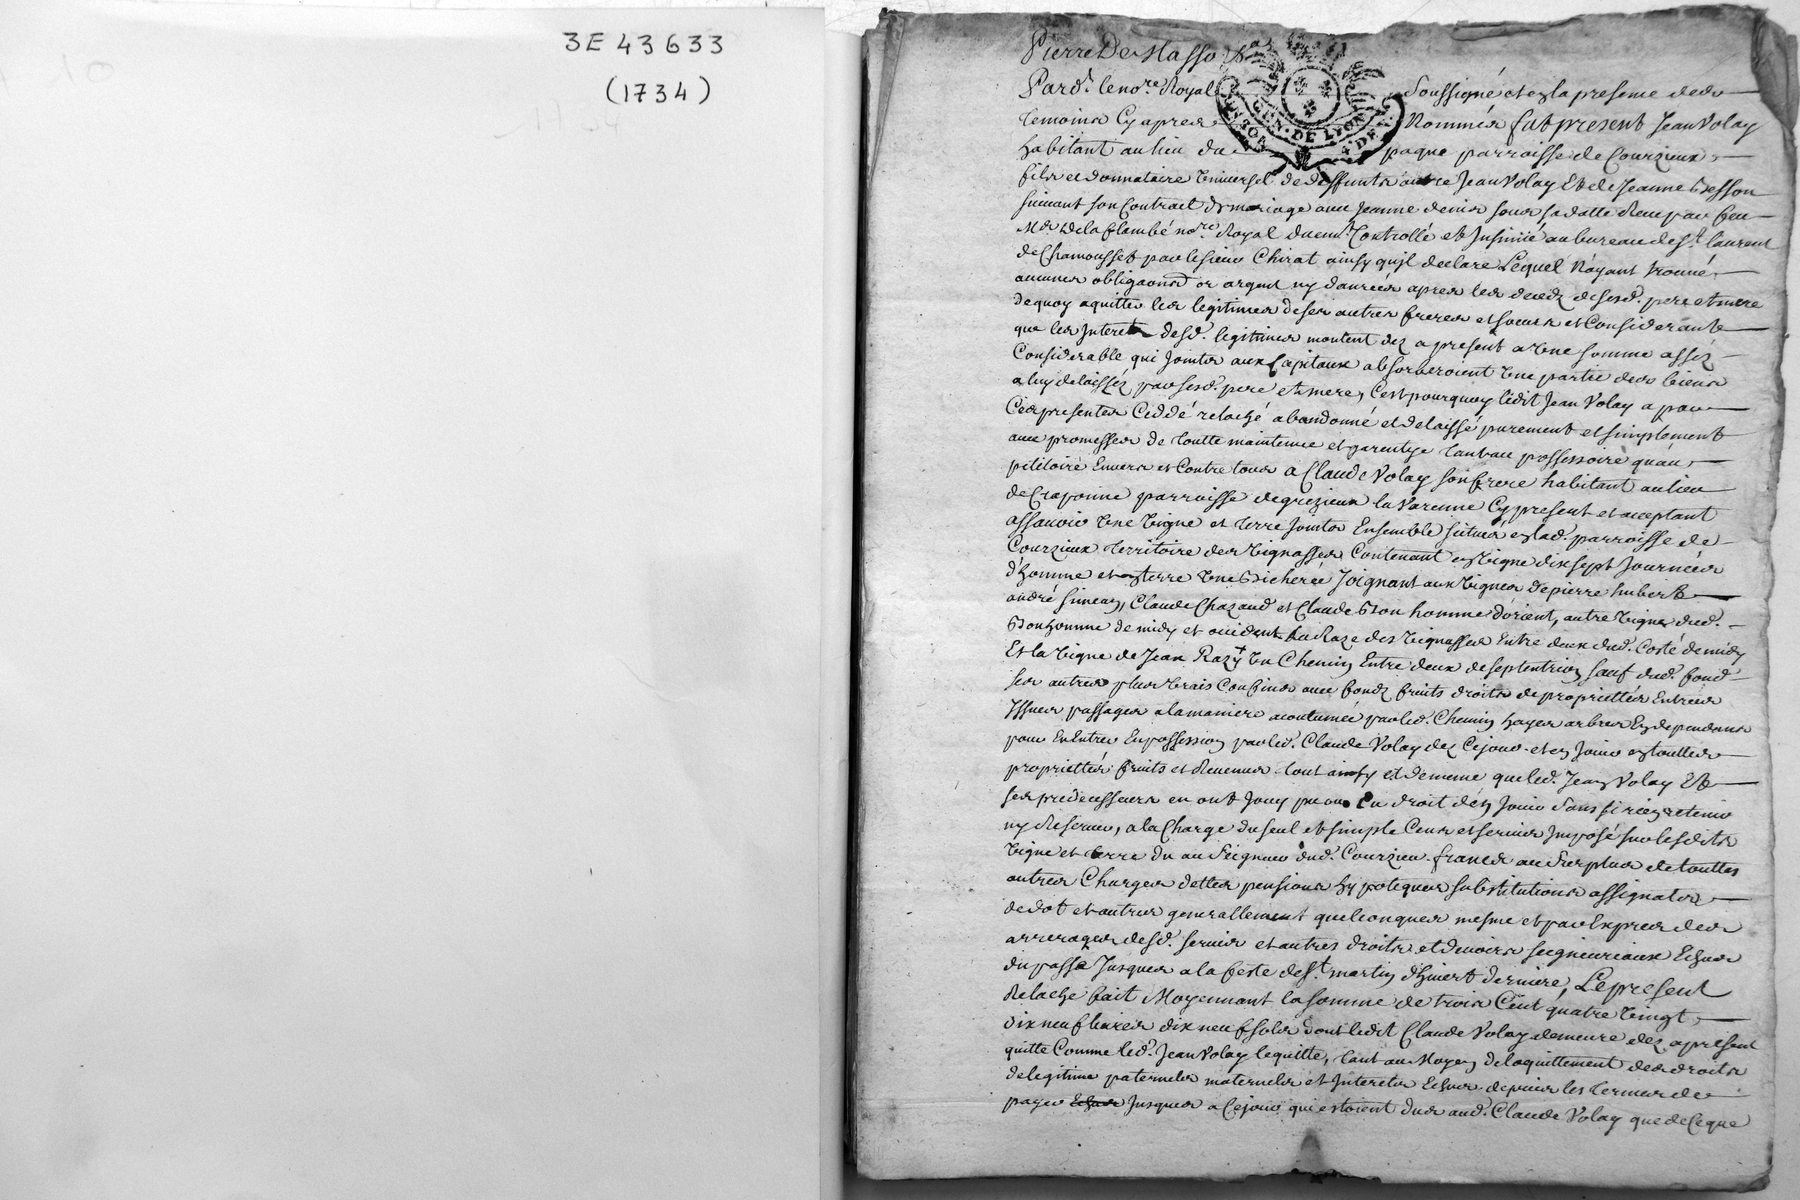 3E 43633
(1734)
Pierre De Masso
Pard.t le no.re Royal Soussigné et en la presence des
temoins Cy apres Nommés fut present Jean Volay
habitant au lieu du paque parroisse de Courzieux
fils et donnataire Universel de deffunts autre Jean Volay Et de Jeanne Besson
suivant son Contract de mariage avec Jeanne denis sous sa datte Receu par feu
M.e Delaflambé no.re Royal duem.t Controllé et Insinüé au bureau de S.t laurent
de Chamousset par le sieur Chirat ainsy qu'il declare Lequel N'ayant trouvé
aucunes obligaons or argent ny danrees apres les deceds de sesd. pere et mere
dequoy aquitter les legitimes de ses autres freres et soeurs et Considerant
que les Interets desd. legitimes montent dez a present a Une somme assez
Considerable qui Jointes aux Capitaux absorberoient Une partie des biens
a luy delaissés par sesd. pere et mere, C'est pourquoy ledit Jean Volay a par
Ces presentes Ceddé relaché abandonné et delaissé purement et simplement
avec promesses de toutte maintenue et garentye tant au possessoire qu'au
petitoire Envers et Contre tous a Claude Volay son frere habitant au lieu
de Craponne parroisse de grezieux la Varenne Cy present et acceptant
assavoir Une Vigne et terre Jointes Ensemble situés en lad. parroisse de
Courzieux territoire des Vignasses Contenant en Vigne dix sept Journées
d'homme et en terre Une Bicherée Joignant aux Vignes de pierre hubert
andré simean, Claude Chazaud et Claude Bon homme d'orient, autre Vigne dud.
Bonhomme de midy et occident la Raze des Vignasses Entre deux dud. Costé de midy
Et la Vigne de Jean Razy Un Chemin Entre deux de septentrion sauf dud. fond
ses autres plus Vrais Confins avec fondz fruits droits de proprietés Entrées
Issues passages a la maniere acoutumée par led. Chemin hayes arbres En dependants
pour En Entrer En possession par led. Claude Volay dez Cejour et en Jouir en touttes
proprietés fruits et Revenus tout ainsy et de meme que led. Jean Volay Et
ses predecesseurs en ont Jouy pu ou Eu droit d'en Jouir sans si rien retenir
ny Reserver, a la Charge du seul et simple Cens et servis Imposé sur lesdits
Vigne et terre du au Seigneur dud. Courzieu francs au surplus de touttes
autres Charges dettes pensions hypoteques substitutions assignats
de dot et autres generallement quelconques mesme et par Expres des
arrerages desd. servis et autres droits et devoirs seigneuriaux Echus
du passé Jusques a la feste de S.t martin d'hivert derniere, Le present
Relaché fait Moyennant la somme de trois Cent quatre Vingt
dix neuf livres dix neuf sols dont ledit Claude Volay demeure dez a present
quitte Comme led. Jean Volay le quitte, tant au Moyen de laquittement des droits
de legitime paternels maternels et Interets Echus depuis les termes de
payer Jusques a Cejour qui estoient dus aud. Claude Volay que de Ce que